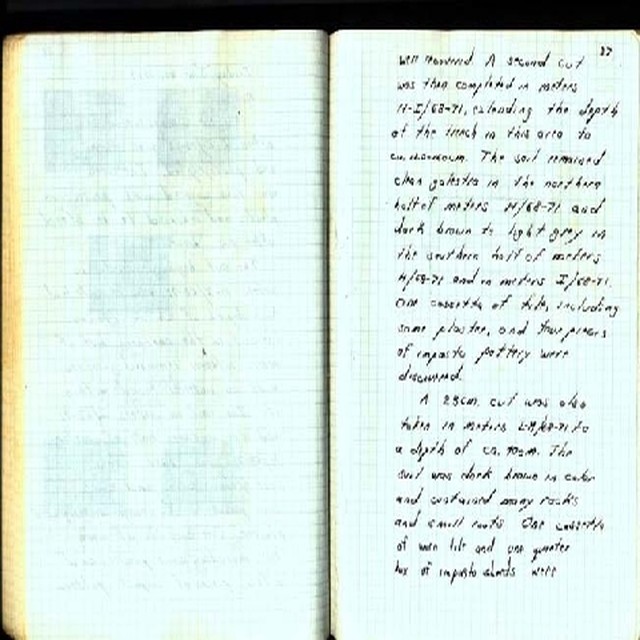 37
were recovered. A second cut
was then completed in meters
H-I/68-71, extending the depth
of the trench in this area to
The soil remained
clean galestra in the northern
half of meters H/68-71 and
dark brown to light grey in
the southern half of meters
H/68-71 and in meters I/68-71.
One cassetta of tile, including
some plaster, and four pieces
of impasto pottery were
discovered.
A 23cm. cut was also
taken in meters /68-71 to
a depth of ca. The
soil was dark brown in color
and contained many rocks
and small roots. One cassetta
of wan tile and one quarter
box of impasto sherds were